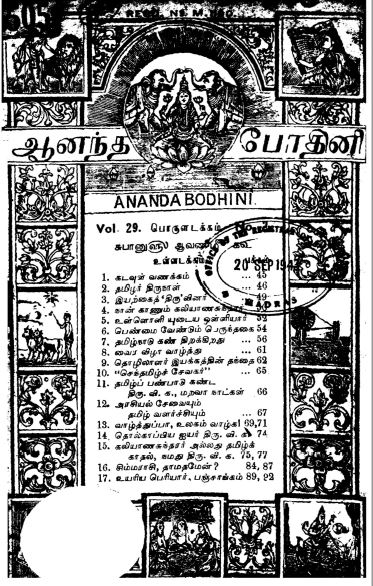 505
REGD. NO M.
ஆனந்த போதினி
ANANDA BODHINI.
Vol. 29. பொருளடக்கம்
சுபானுஸ்ரீ ஆவணி
உள்ளடக்கம்
OFFICE OF THE REGISTRAR
20 SEP 194
MADRAS
1. கடவுள் வணக்கம் ... 45
2. தமிழர் திருநாள் ... 46
3. இயற்கைத் 'திரு'வினர் ... 49
4. நான் காணும் கலியாணசுந்தர
5. உள்ளொளி யுடைய ஒள்ளியார் 52
6. பெண்மை வேண்டும் பெருந்தகை 54
7. தமிழ்நாடு கண் திறக்கிறது ... 56
8. வைர விழா வாழ்ந்து ... 61
9. தொழிலாளர் இயக்கத்தின் தந்தை 62
10. “செந்தமிழ்ச் சேவகர்” ... 65
11. தமிழ்ப் பண்பாடு கண்ட
திரு. வி. க., மறவா நாட்கள் 66
12. அரசியல் சேவையும்
தமிழ் வளர்ச்சியும் ... 67
13. வாழ்த்துப்பா, உலகம் வாழ்க! 69,71
14. தொல்காப்பிய ஐயர் திரு. வி. க. 74
15. கலியாணசுந்தரர் அல்லது தமிழ்க்
காதல், நமது திரு. வி. க. 75, 77
16. சிம்மராசி, தாமதமேன்? 84, 87
17. உயரிய பெரியார், பஞ்சாங்கம் 89, 92